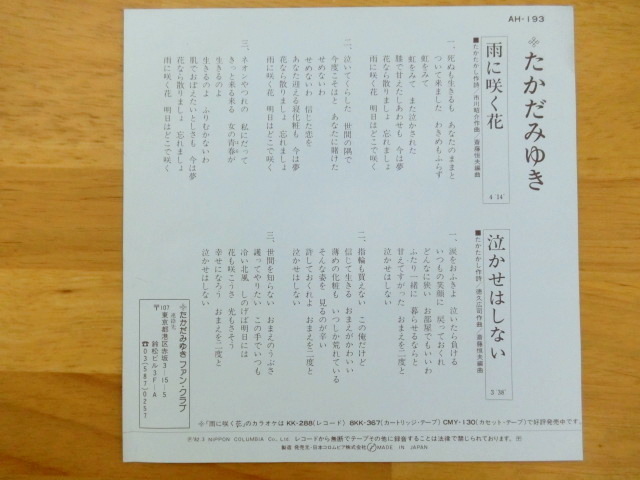 AH-193
❖たかだみゆき
雨に咲く花
4′14″
■たかたかし作詩/市川昭介作曲/斎藤恒夫編曲
一、死ぬも生きるも あなたのままと
ついて来ました わきめもふらず
虹をみて
虹をみて また泣かされた
膝で甘えたしあわせも 今は夢
花なら散りましょ 忘れましょ
雨に咲く花 明日はどこで咲く
二、泣いてくらした 世間の隅で
今度こそはと あなたに賭けた
せめないわ
せめないわ 信じた恋を
あなた迎える寝化粧も 今は夢
花なら散りましょ 忘れましょ
雨に咲く花 明日はどこで咲く
三、ネオンやつれの 私にだって
きっと来る来る 女の青春が
生きるのよ
生きるのよ ふりむかないわ
肌でおぼえたいとしさも 今は夢
花なら散りましょ 忘れましょ
雨に咲く花 明日はどこで咲く
泣かせはしない
3′38″
■たかたかし作詩/徳久広司作曲/斎藤恒夫編曲
一、涙をおふきよ 泣いたら負ける
いつもの笑顔に 戻っておくれ
どんなに狭い お部屋でもいいわ
ふたり一緒に 暮らせるならと
甘えてすがった おまえを二度と
泣かせはしない
二、指輪も買えない この俺だけど
信じて生きる おまえがかわいい
薄めの化粧も いつしか荒れている
そんな姿を 見るのが辛い
許しておくれよ おまえを二度と
泣かせはしない
三、世間を知らない おまえのうぶさ
護ってやりたい この手でいつも
冷い北風 しのげば明日には
花も咲こうさ 光もさそう
幸せになろう おまえを二度と
泣かせはしない
❖たかだみゆきファン・クラブ
連絡先
〒107 東京都港区赤坂3-15-5
鈴松ビル3F-A
☎03(587)0257
❖「雨に咲く花」のカラオケは KK-288(レコード) 8KK-367(カートリッジ・テープ) CMY-130(カセット・テープ)で好評発売中です。
Ⓟ'82.3 NIPPON COLUMBIA Co., Ltd. レコードから無断でテープその他に録音することは法律で禁じられております。
製造 発売元・日本コロムビア株式会社 MADE IN JAPAN